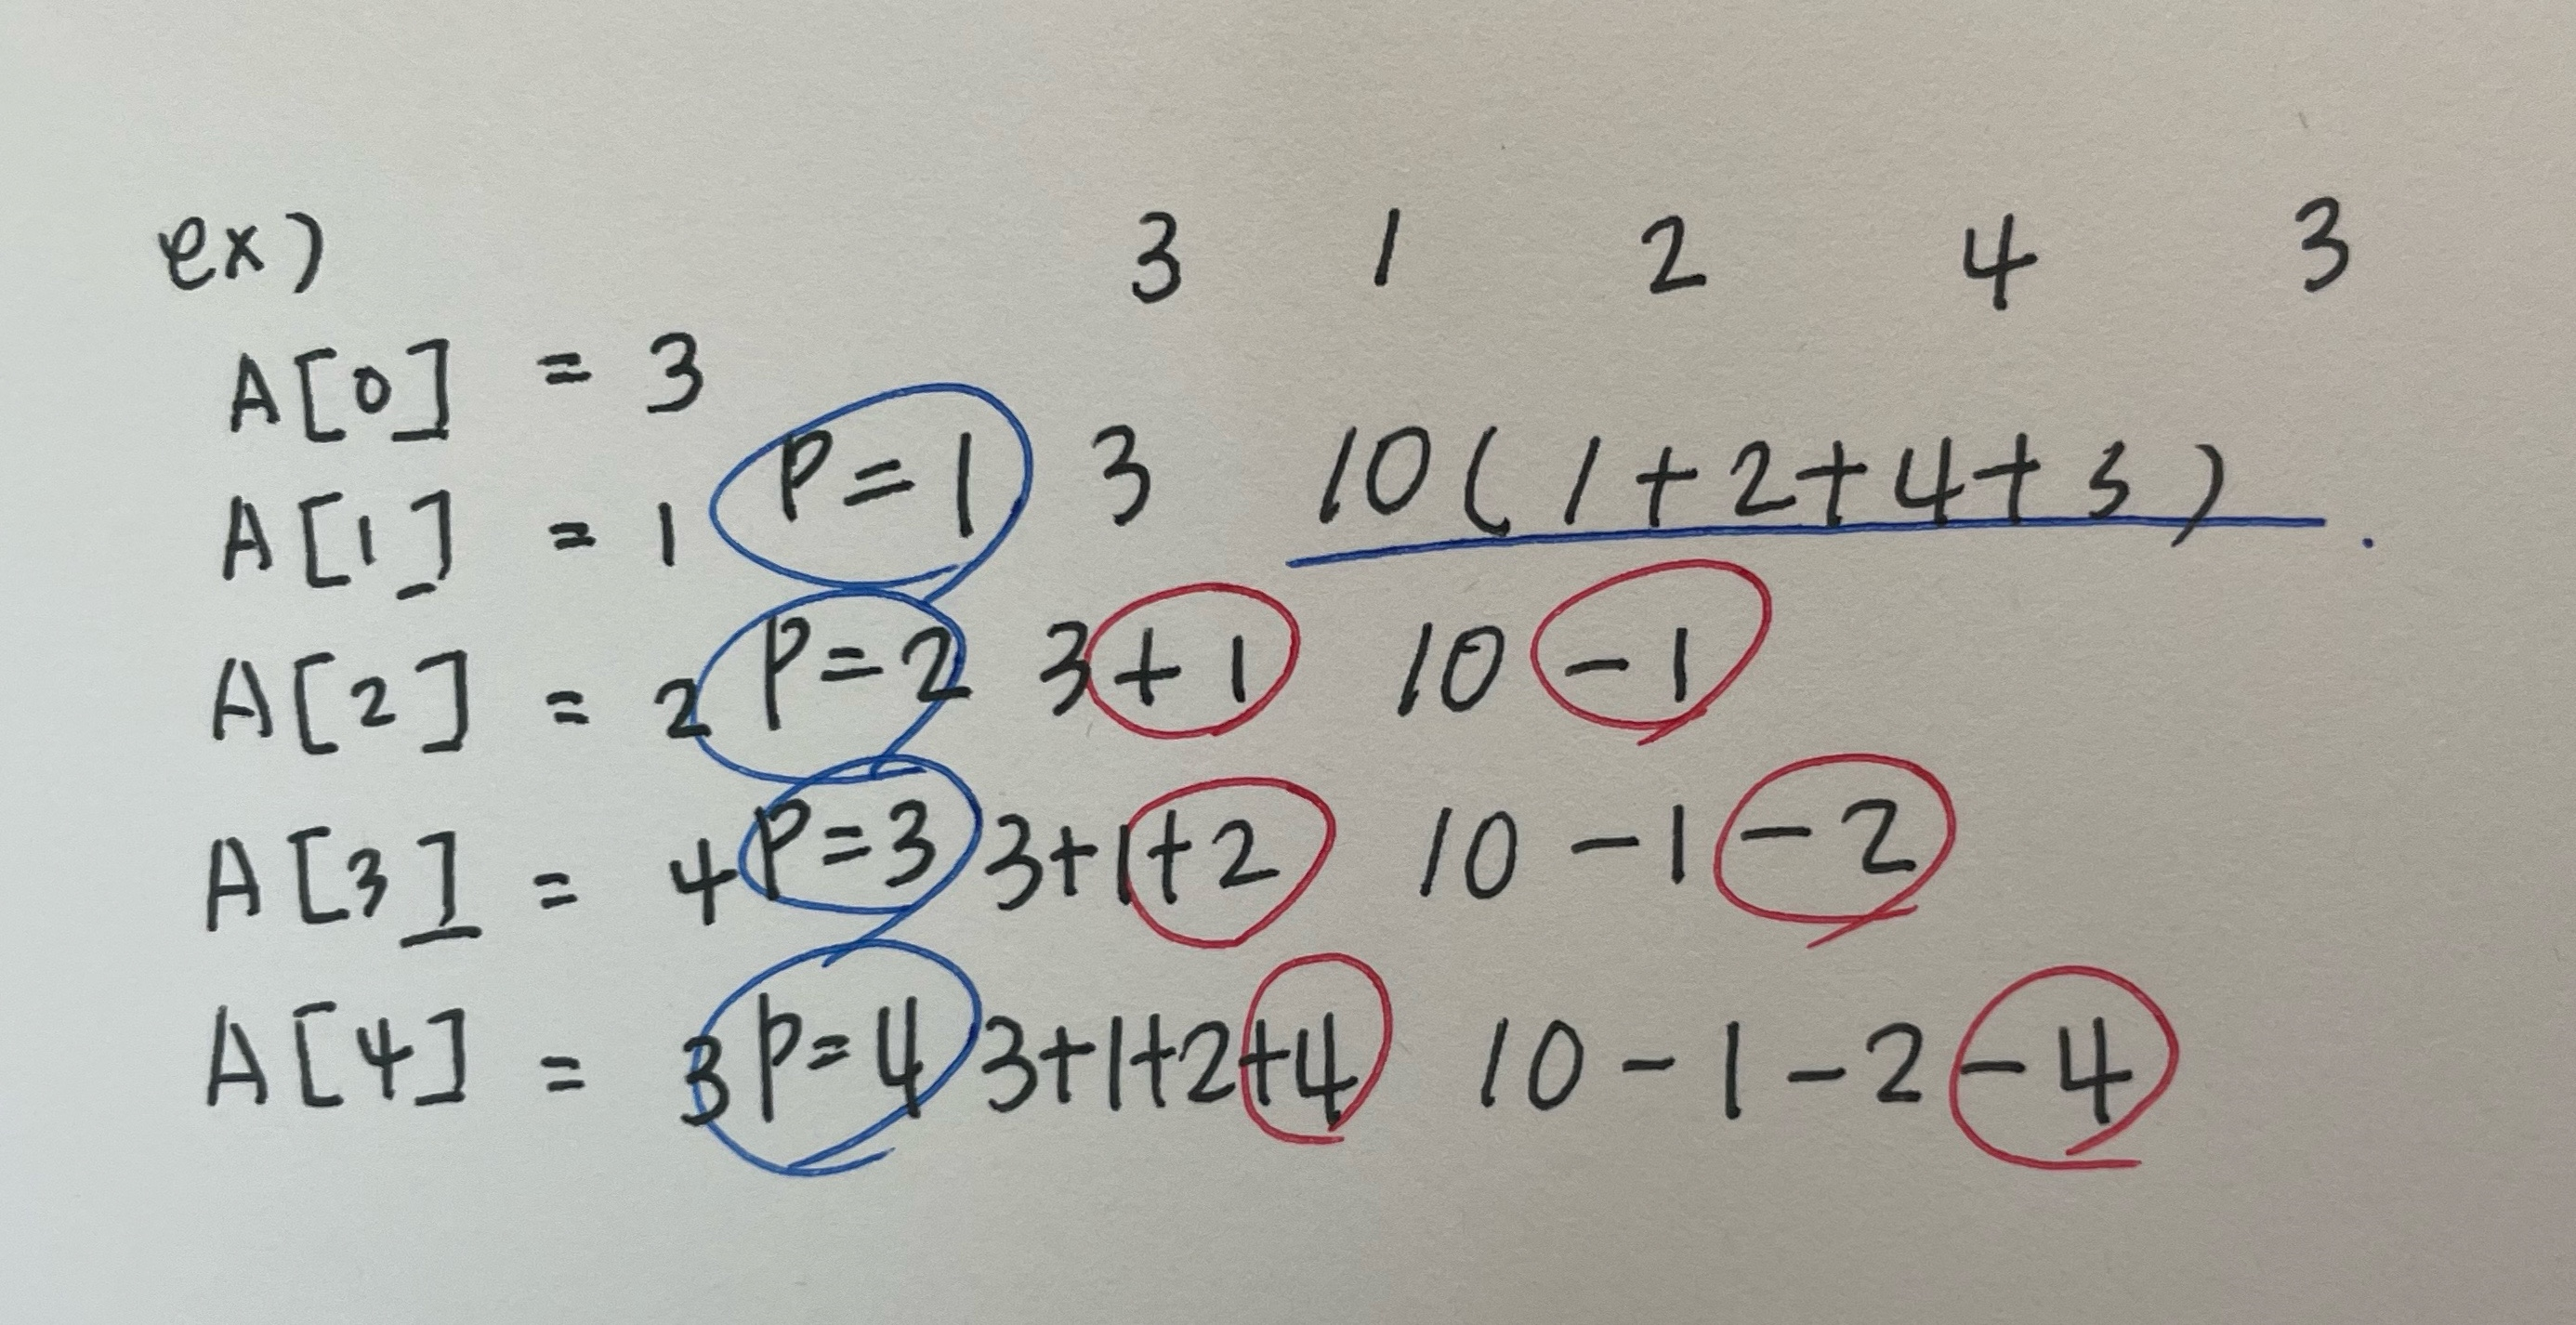 ex) 3 1 2 4 3
A[0] = 3
A[1] = 1 P=1 3 10(1+2+4+3)
A[2] = 2 P=2 3+1 10-1
A[3] = 4 P=3 3+1+2 10-1-2
A[4] = 3 P=4 3+1+2+4 10-1-2-4